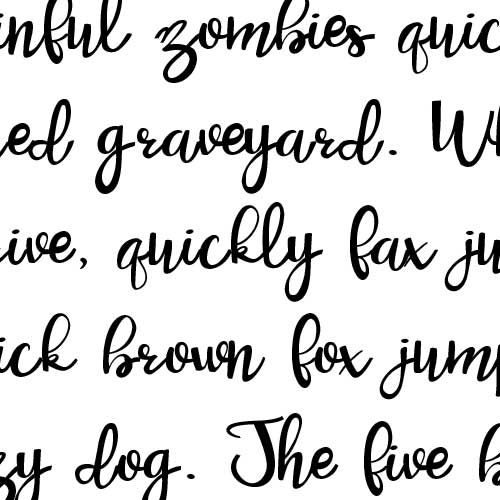 inful zombies quic
ed graveyard. Wh
ive, quickly fax ju
ick brown fox jump
zy dog. The five b